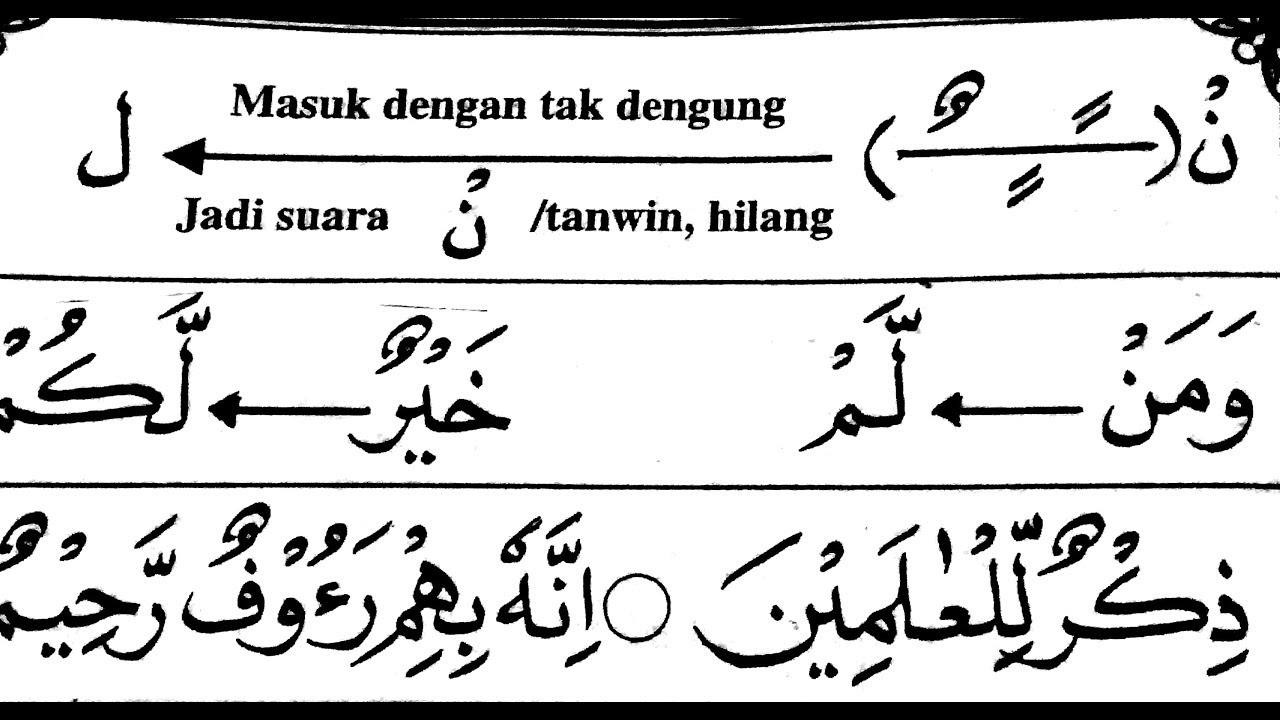 نْ (ـًـٍـٌ) Masuk dengan tak dengung ل
Jadi suara نْ /tanwin, hilang
وَمَنْ لَّمْ خَيْرٌ لَّكُمْ
ذِكْرٌ لِّلْعٰلَمِيْنَ ○ اِنَّهٗ بِهِمْ رَءُوْفٌ رَّحِيْمٌ